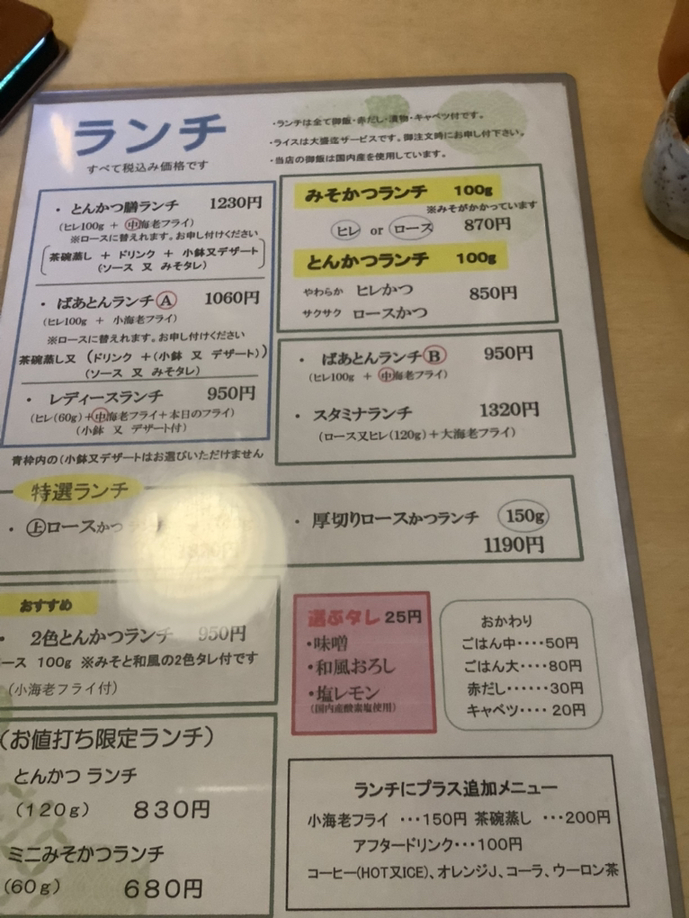 ランチ
すべて税込み価格です
・ランチは全て御飯・赤だし・漬物・キャベツ付です。
・ライスは大盛迄サービスです。御注文時にお申し付下さい。
・当店の御飯は国内産を使用しています。
・とんかつ膳ランチ 1230円
(ヒレ100g + 中海老フライ)
※ロースに替えれます。お申し付けください
茶碗蒸し + ドリンク + 小鉢又デザート
(ソース 又 みそタレ)
・ばあとんランチA 1060円
(ヒレ100g + 小海老フライ)
※ロースに替えれます。お申し付けください
茶碗蒸し又 (ドリンク +(小鉢 又 デザート))
(ソース 又 みそタレ)
・レディースランチ 950円
(ヒレ(60g)+中海老フライ+本日のフライ)
(小鉢 又 デザート付)
青枠内の(小鉢又デザートはお選びいただけません
みそかつランチ 100g
※みそがかかっています
ヒレ or ロース 870円
とんかつランチ 100g
やわらか ヒレかつ 850円
サクサク ロースかつ
・ばあとんランチB 950円
(ヒレ100g + 中海老フライ)
・スタミナランチ 1320円
(ロース又ヒレ(120g)+大海老フライ)
特選ランチ
・上ロースかつ
・厚切りロースかつランチ 150g
1190円
おすすめ
・2色とんかつランチ 950円
ース 100g ※みそと和風の2色タレ付です
(小海老フライ付)
選ぶタレ 25円
・味噌
・和風おろし
・塩レモン
(国内産酸素塩使用)
おかわり
ごはん中・・・・50円
ごはん大・・・・80円
赤だし・・・・・・30円
キャベツ・・・・20円
(お値打ち限定ランチ)
とんかつ ランチ
(120g) 830円
ミニみそかつランチ
(60g) 680円
ランチにプラス追加メニュー
小海老フライ ・・・150円 茶碗蒸し ・・・200円
アフタードリンク・・・100円
コーヒー(HOT又ICE)、オレンジJ、コーラ、ウーロン茶